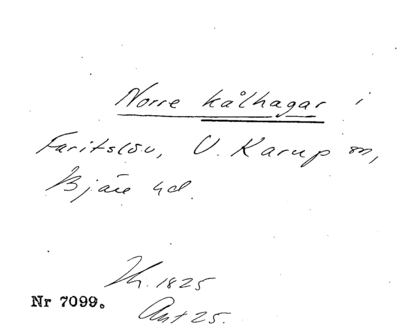 Norre kålhagar i
Faritslöv, V. Karup sn,
Bjäre hd.
Th. 1825
Akt 25.
Nr 7099.